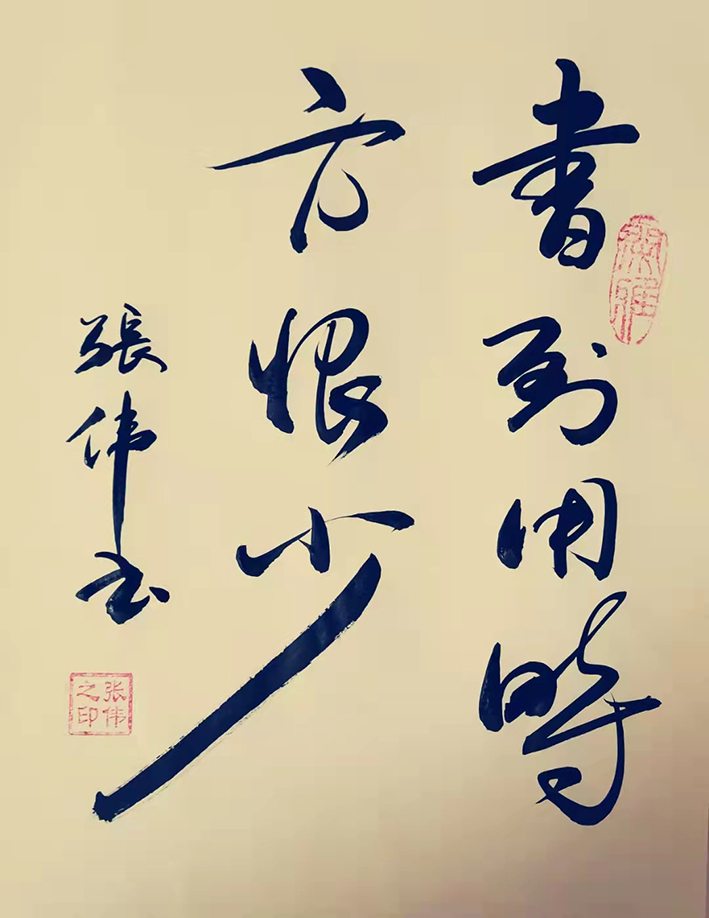 書到用時
方恨少
張伟书
张伟之印